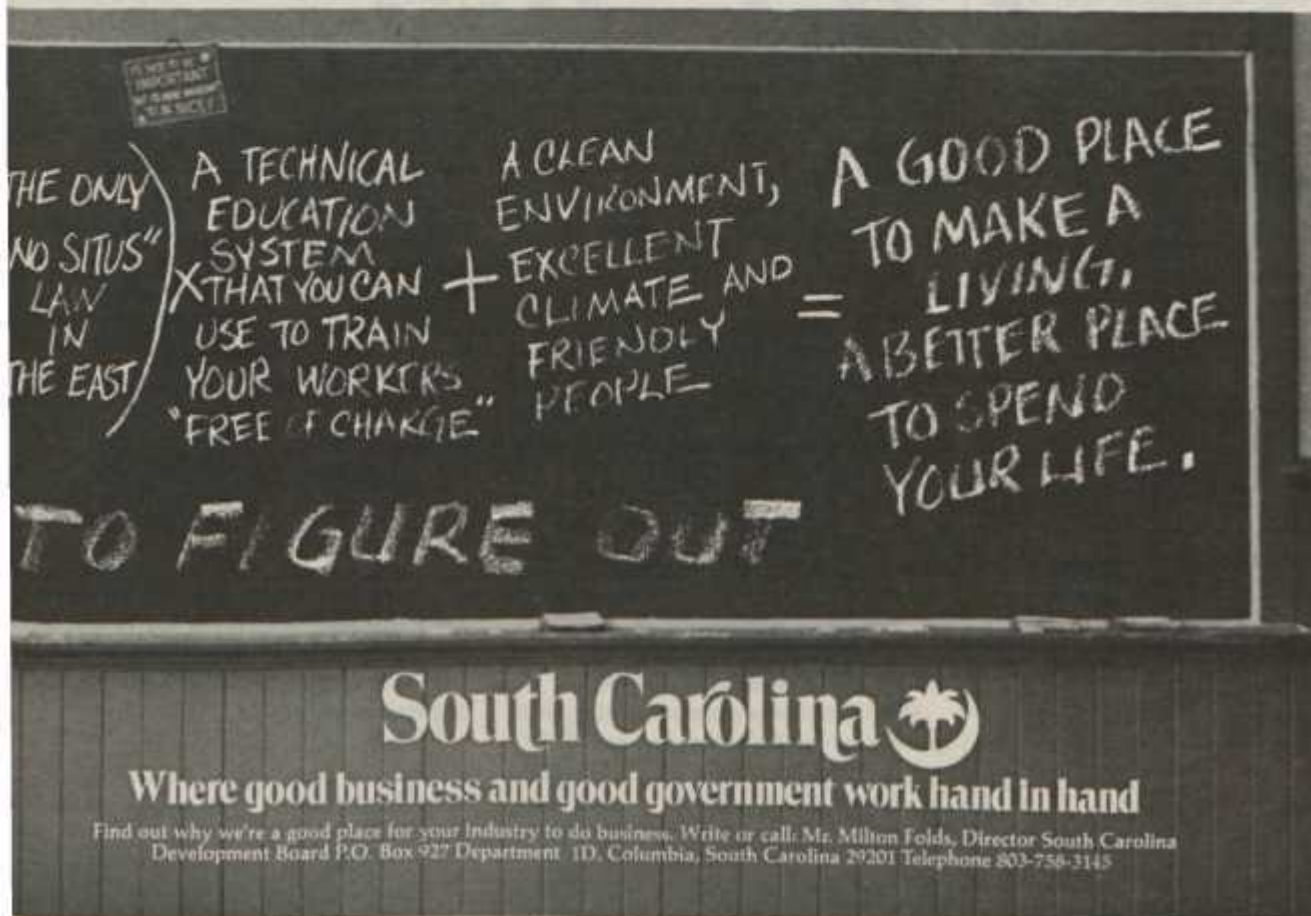 IMPORTANT
THE ONLY
NO SITUS"
LAW
IN
THE EAST)
X
A TECHNICAL
EDUCATION
SYSTEM
THAT YOU CAN
USE TO TRAIN
YOUR WORKERS
"FREE OF CHARGE"
+
A CLEAN
ENVIRONMENT,
EXCELLENT
CLIMATE AND
FRIENDLY
PEOPLE
=
A GOOD PLACE
TO MAKE A
LIVING,
A BETTER PLACE
TO SPEND
YOUR LIFE.
TO FIGURE OUT
South Carolina
Where good business and good government work hand in hand
Find out why we're a good place for your industry to do business. Write or call: Mr. Milton Folds, Director South Carolina
Development Board P.O. Box 927 Department 1D, Columbia, South Carolina 29201 Telephone 803-758-3145